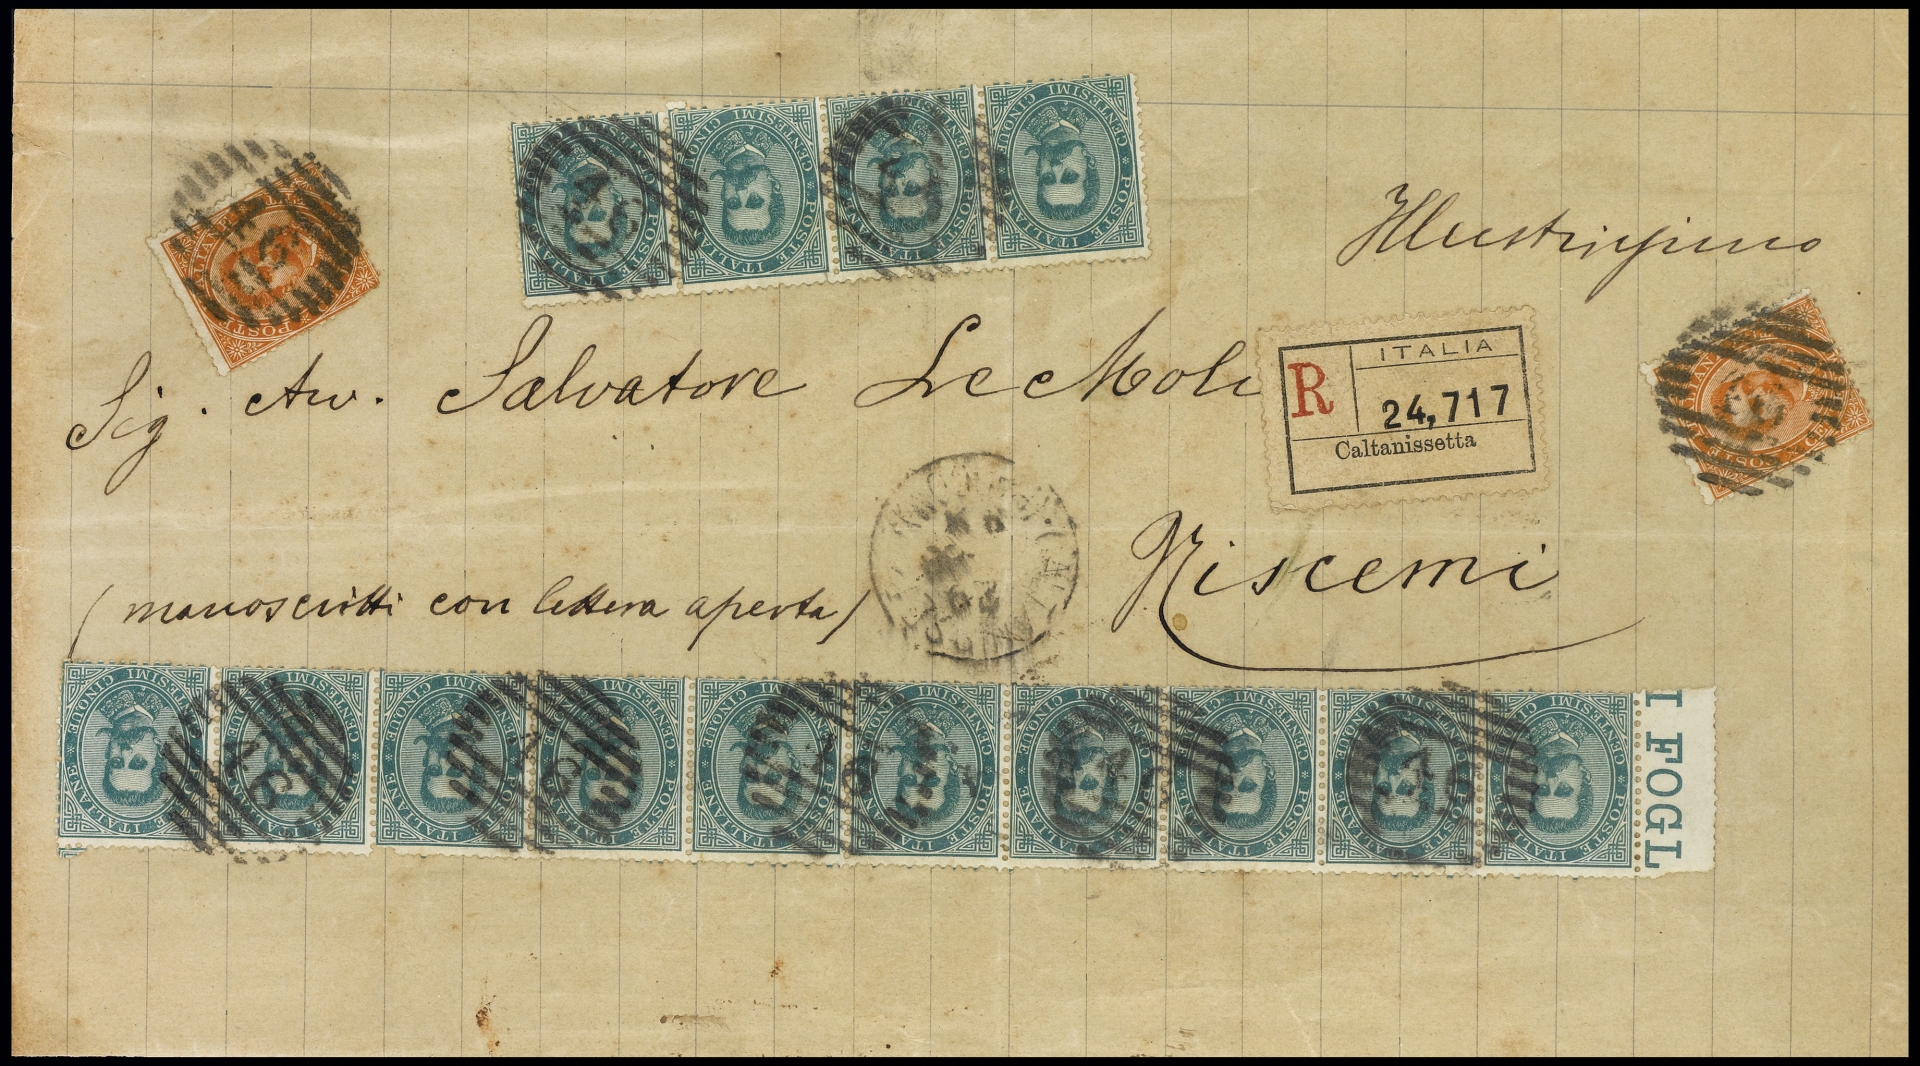 Illustrissimo
Sig. Avv. Salvatore Le Moli
R
ITALIA
24,717
Caltanissetta
Niscemi
(manoscritti con lettera aperta)
POSTE ITALIANE CENTESIMI CINQUE
POSTE ITALIANE CENTESIMI CINQUE
I FOGL